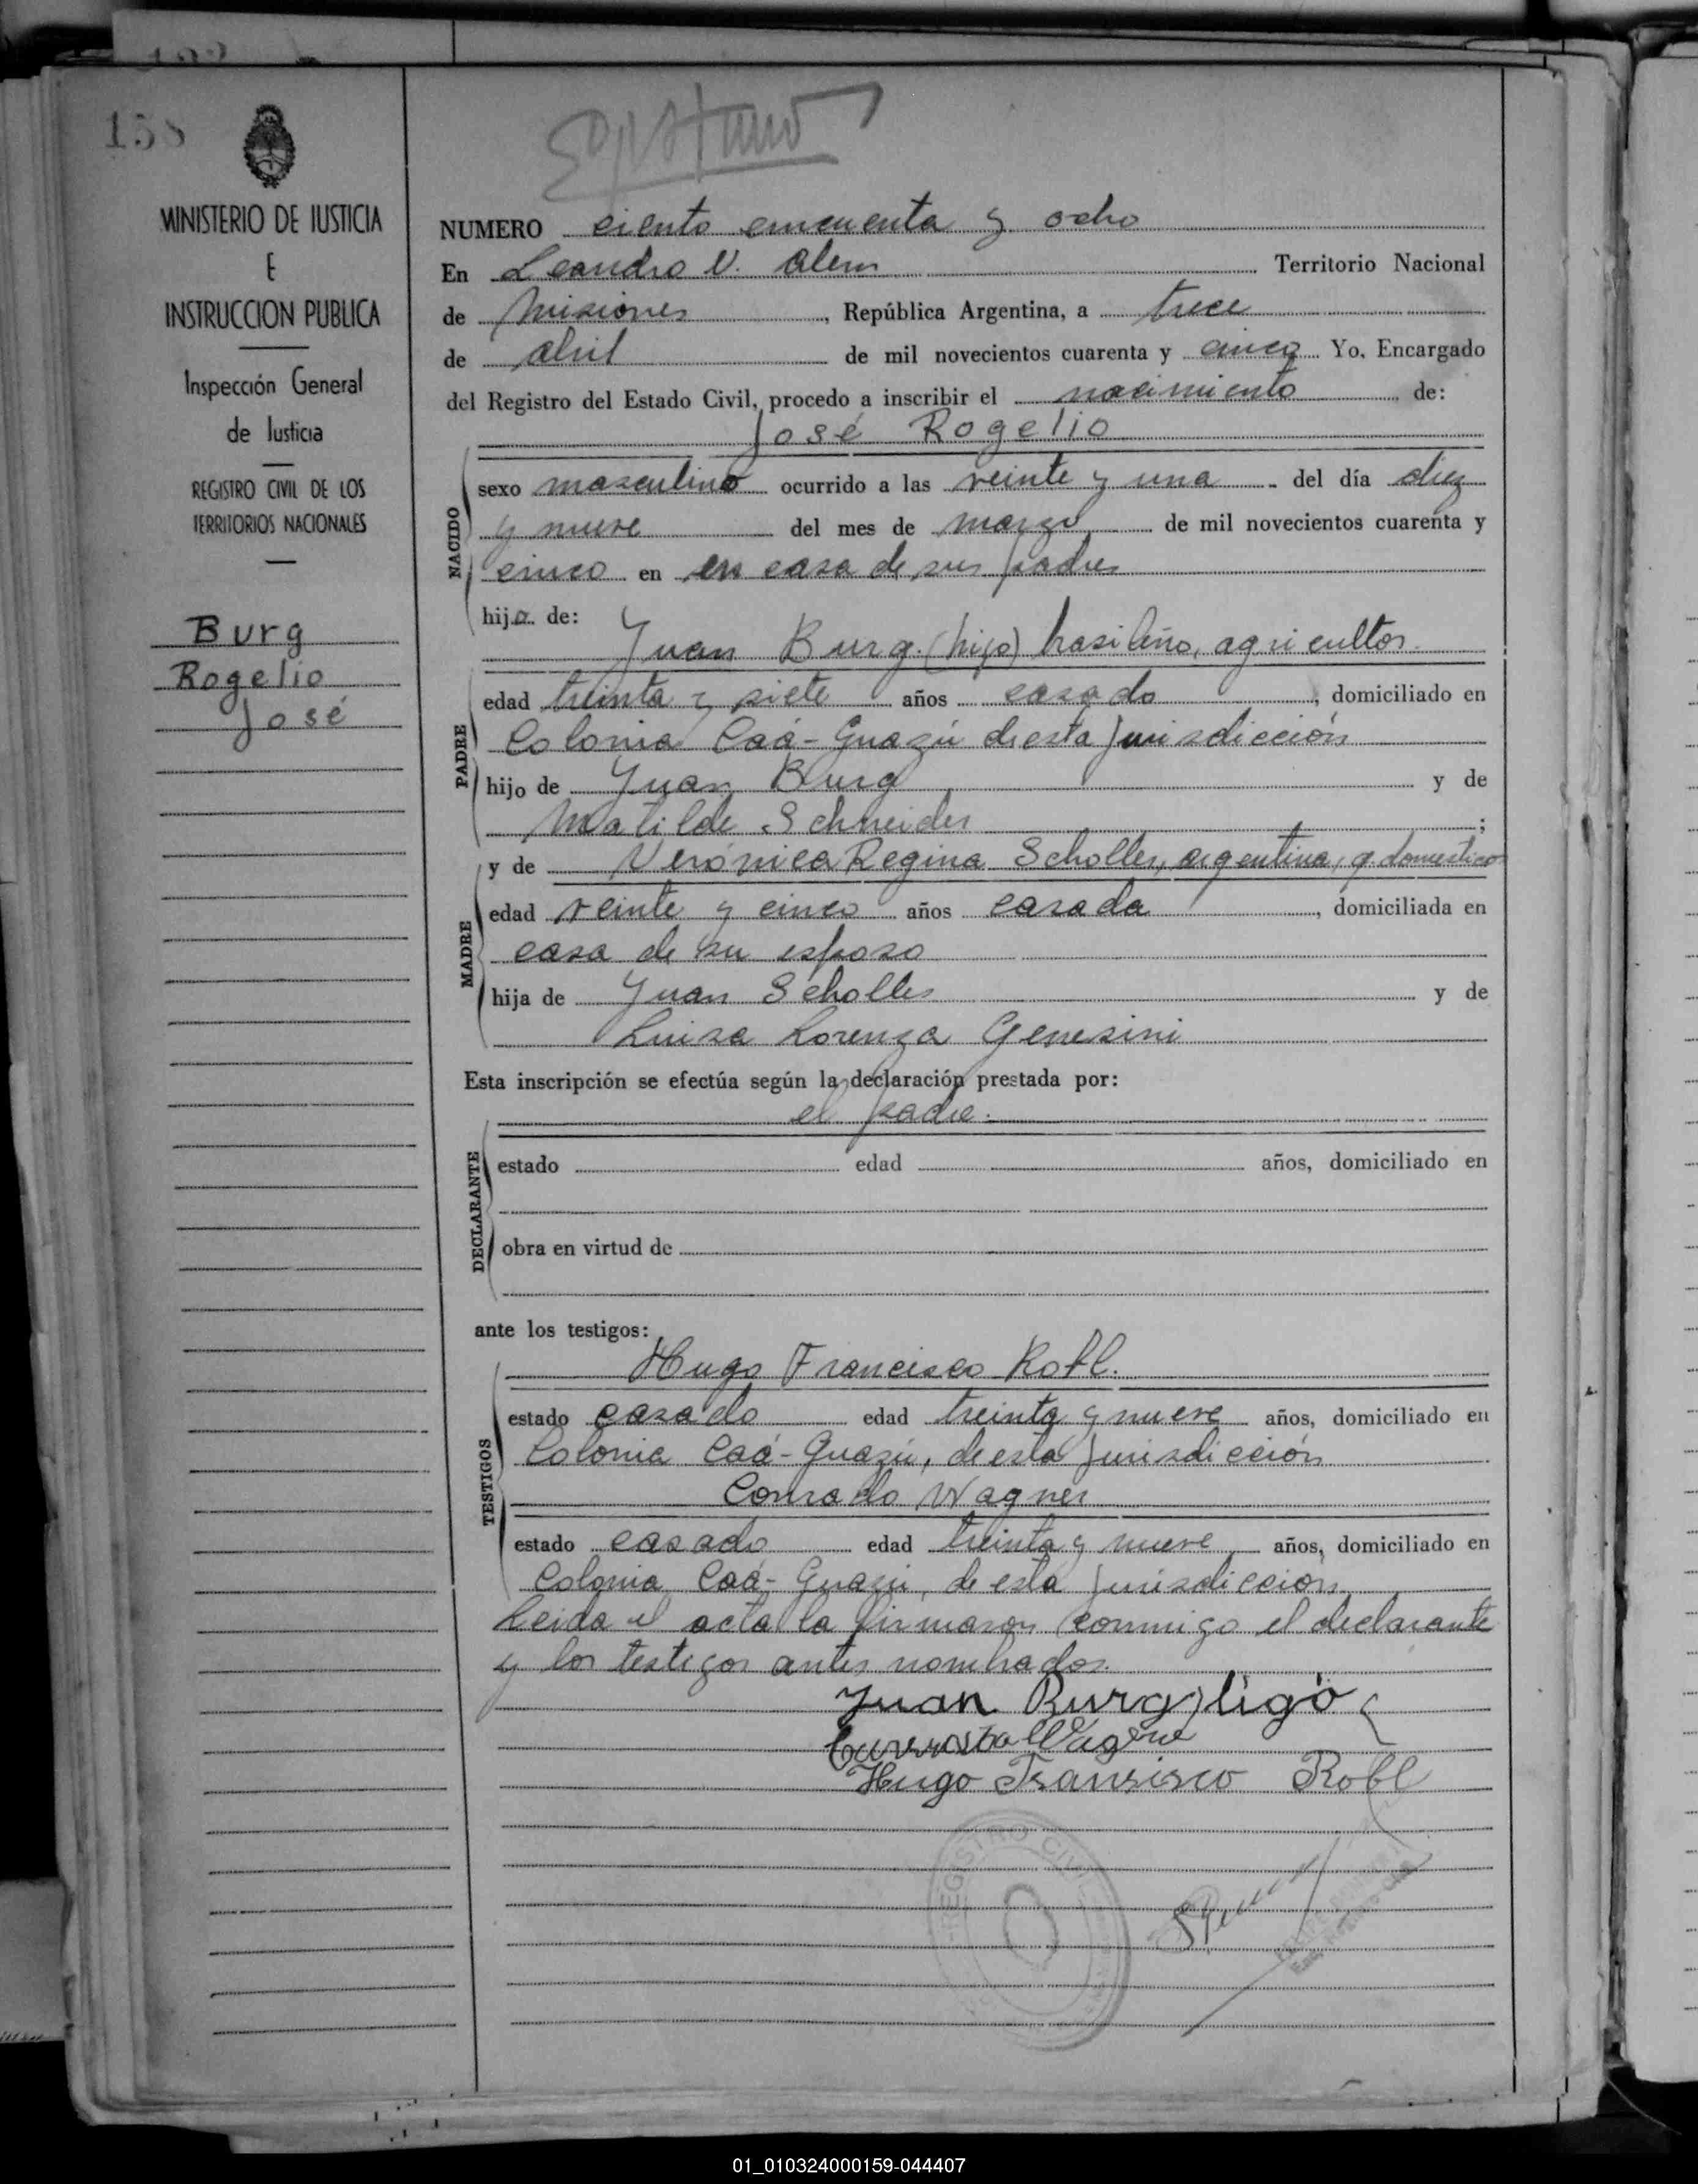 158
MINISTERIO DE JUSTICIA
E
INSTRUCCION PUBLICA
Inspección General
de Justicia
REGISTRO CIVIL DE LOS
TERRITORIOS NACIONALES
Burg
Rogelio
José
NUMERO ciento cincuenta y ocho
En Leandro N. Alem Territorio Nacional
de Misiones, República Argentina, a trece
de abril de mil novecientos cuarenta y cinco Yo, Encargado
del Registro del Estado Civil, procedo a inscribir el nacimiento de:
José Rogelio
NACIDO
sexo masculino ocurrido a las veinte y una del día diez
y nueve del mes de marzo de mil novecientos cuarenta y
cinco en en casa de sus padres
hijo de:
Juan Burg (hijo) brasileño, agricultor.
PADRE
edad treinta y siete años casado, domiciliado en
Colonia Caá-Guazú de esta jurisdicción
hijo de Juan Burg y de
Matilde Schneider;
y de Verónica Regina Scholler, argentina, q. domesticos
MADRE
edad veinte y cinco años casada, domiciliada en
casa de su esposo
hija de Juan Scholles y de
Luisa Lorenza Genesini
Esta inscripción se efectúa según la declaración prestada por:
el padre.
DECLARANTE
estado edad años, domiciliado en
obra en virtud de
ante los testigos:
Hugo Francisco Robl.
TESTIGOS
estado casado edad treinta y nueve años, domiciliado en
Colonia Caá-Guazú, de esta jurisdicción
Conrado Wagner
estado casado edad treinta y nueve años, domiciliado en
Colonia Caá-Guazú, de esta jurisdicción
Leida el acta la firmaron conmigo el declarante
y los testigos antes nombrados.
Juan Burg
Hugo Fransisco Robl
REGISTRO CIVIL
01_010324000159-044407